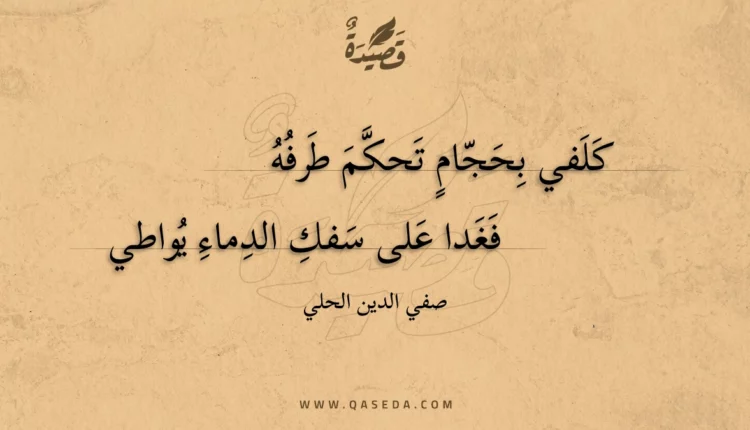 قَصِيْدَةٌ
كَلَفي بِحَجّامٍ تَحكَّمَ طَرفُهُ
فَغَدا عَلى سَفكِ الدِماءِ يُواطي
صفي الدين الحلي
WWW.QASEDA.COM